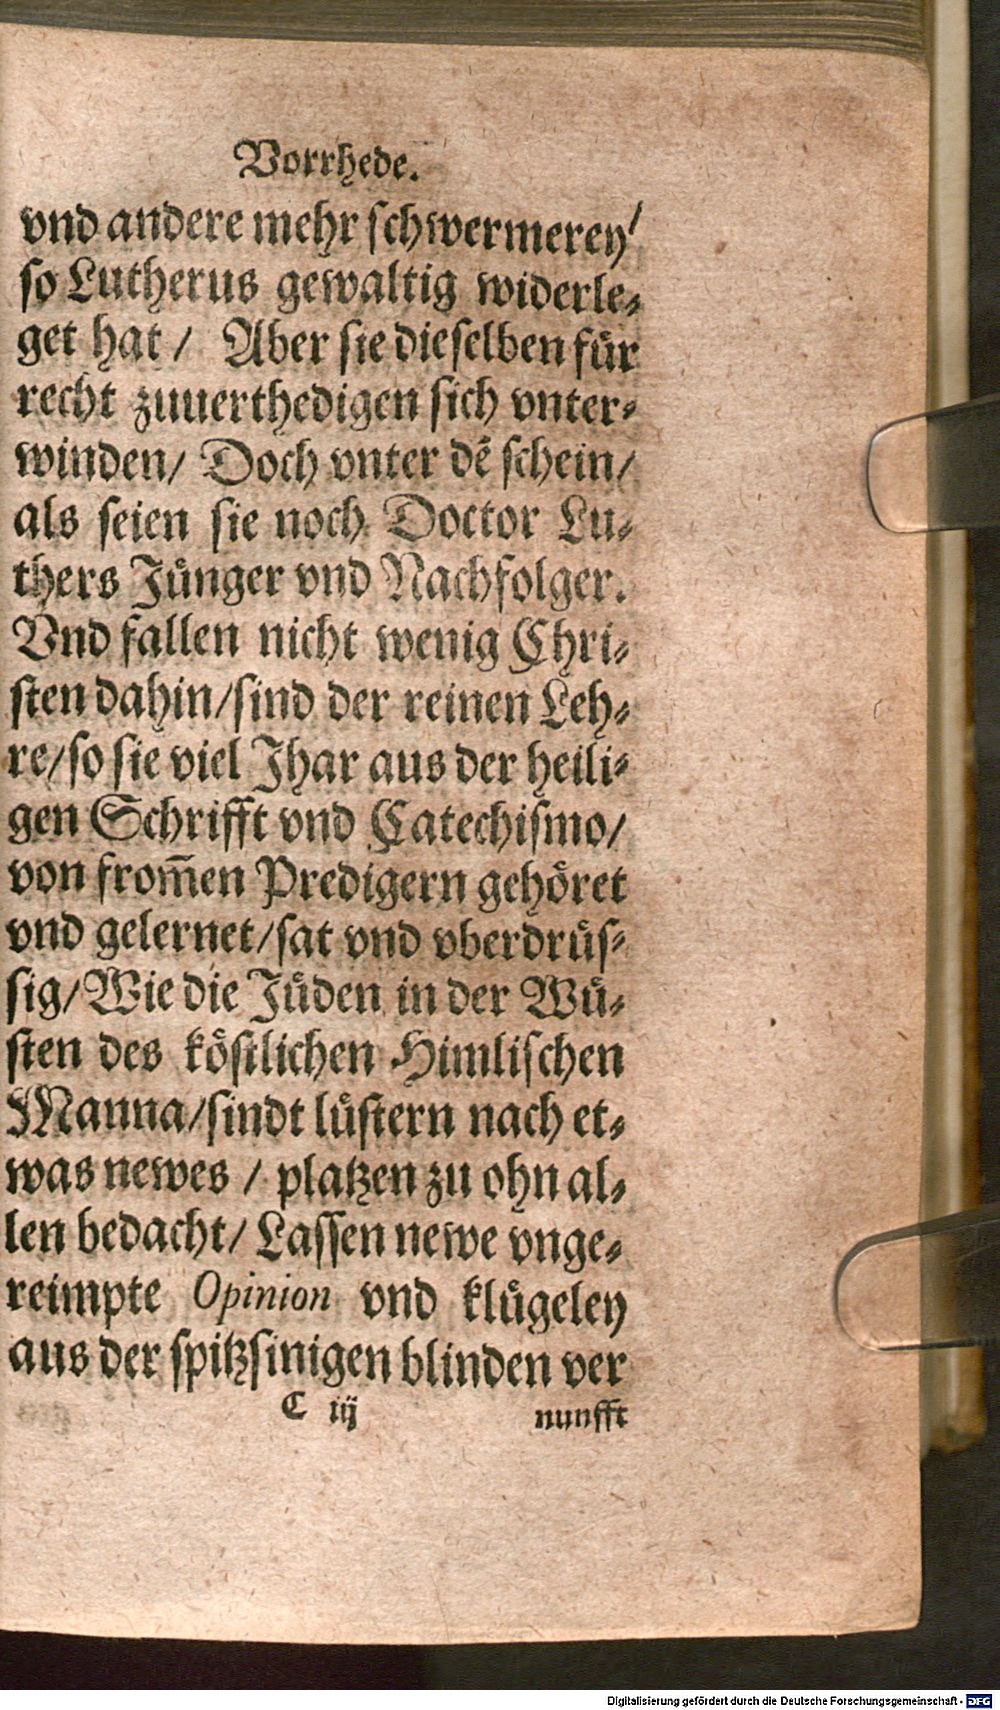 Vorrhede.
vnd andere mehr schwermerey/
so Lutherus gewaltig widerle-
get hat / Aber sie dieselben für
recht zuuerthedigen sich vnter-
winden/ Doch vnter dē schein/
als seien sie noch Doctor Lu-
thers Jünger vnd Nachfolger.
Vnd fallen nicht wenig Chri-
sten dahin/sind der reinen Leh-
re/so sie viel Jhar aus der heili-
gen Schrifft vnd Catechismo/
von from̄en Predigern gehöret
vnd gelernet/sat vnd vberdrüs-
sig/Wie die Jüden in der Wü-
sten des köstlichen Himlischen
Manna/sindt lüstern nach et-
was newes / platzen zu ohn al-
len bedacht/ Lassen newe vnge-
reimpte Opinion vnd klügeley
aus der spitzsinigen blinden ver
C iij nunfft
Digitalisierung gefördert durch die Deutsche Forschungsgemeinschaft - DFG